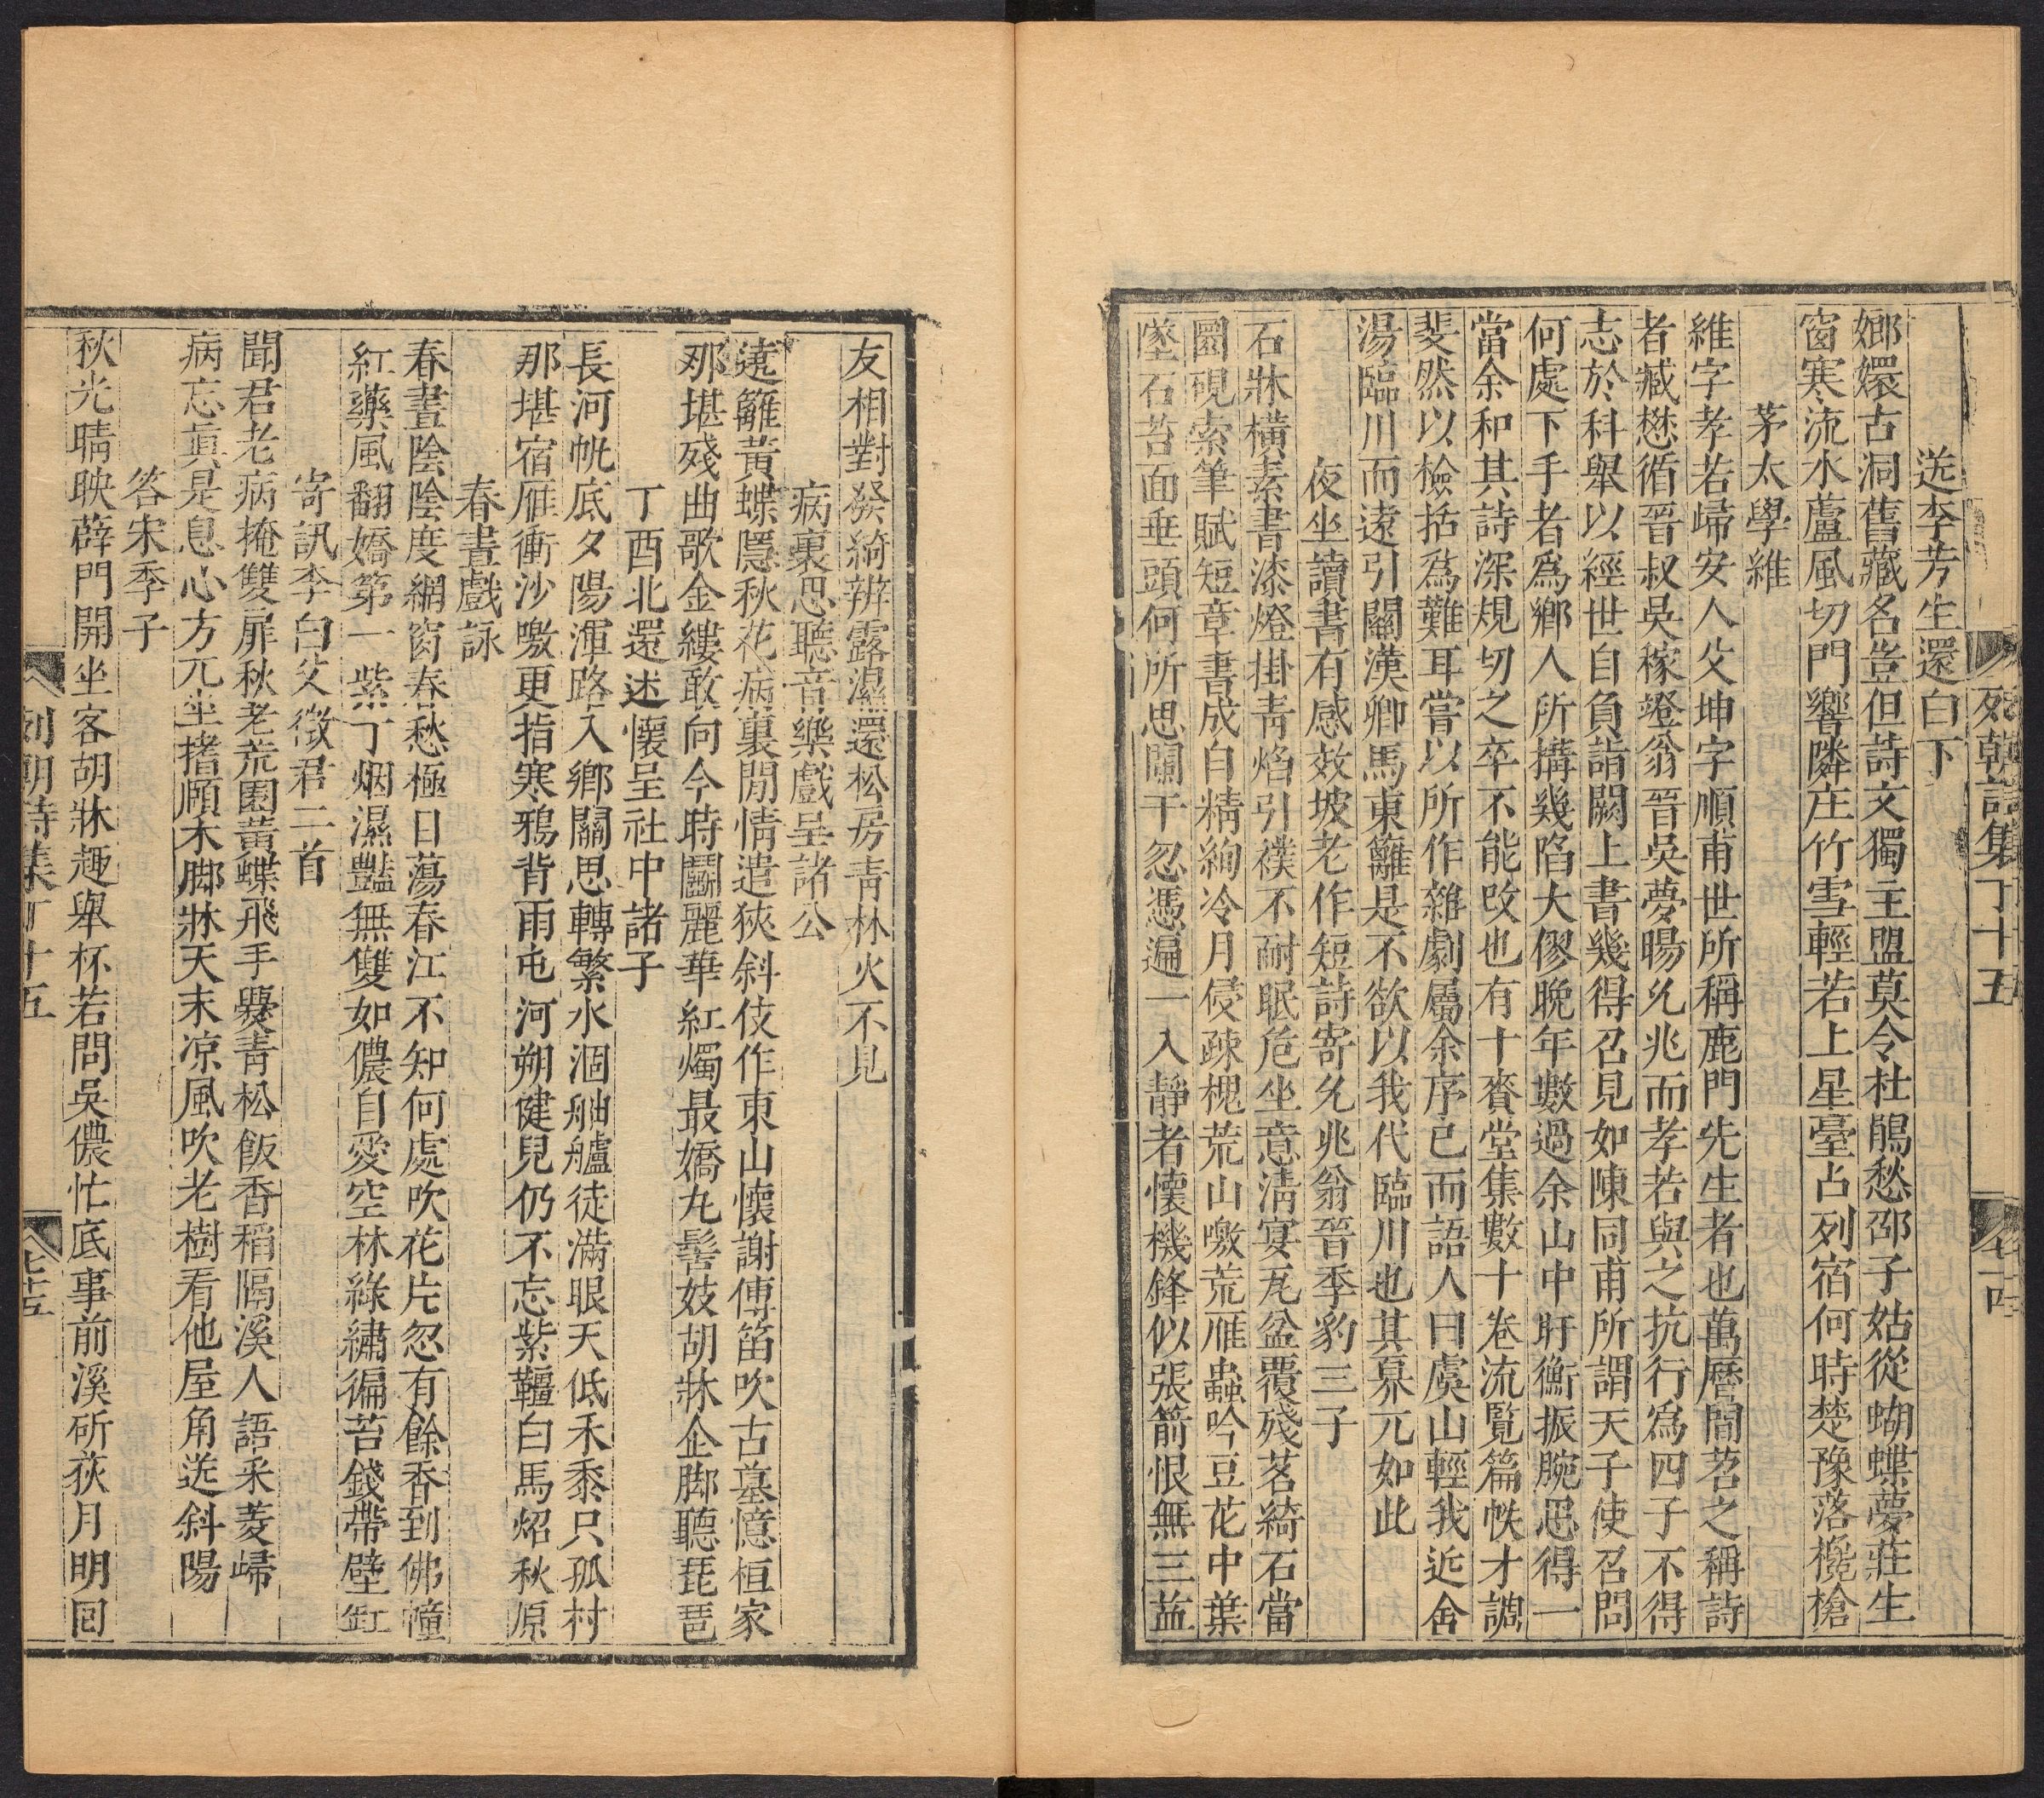 列朝詩集丁十五
七十四
送李芳生還白下
嫏嬛古洞舊藏名豈但詩文獨主盟莫令杜鵑愁邵子姑從蝴蝶夢莊生
窗寒流水蘆風切門響隣庄竹雪輕若上星臺占列宿何時楚豫落攙槍
茅太學維
維字孝若歸安人父坤字順甫世所稱鹿門先生者也萬曆間苕之稱詩
者臧懋循晉叔吳稼竳翁晉吳夢暘允兆而孝若與之抗行為四子不得
志於科舉以經世自負詣闕上書幾得召見如陳同甫所謂天子使召問
何處下手者為鄉人所搆幾陷大僇晚年數過余山中盱衡振腕思得一
當余和其詩深規切之卒不能改也有十賚堂集數十卷流覽篇帙才調
斐然以檢括為難耳嘗以所作雜劇屬余序已而語人曰虞山輕我近舍
湯臨川而遠引關漢卿馬東籬是不欲以我代臨川也其矜兀如此
夜坐讀書有感效坡老作短詩寄允兆翁晉季豹三子
石牀橫素書漆燈掛青焰引襆不耐眠危坐意淸宴瓦盆覆殘茗綺石當
圜硯索筆賦短章書成自精絢冷月侵疎櫻荒山噭荒雁蟲吟豆花中葉
墜石苔面垂頭何所思闌干忽憑遍一入靜者懷機鋒似張箭恨無三益
友相對發綺辨露濕還松房青林火不見
病裏思聽音樂戲呈諸公
遶籬黃蝶隱秋花病裏閒情遣狹斜伎作東山懷謝傅笛吹古墓憶桓家
那堪殘曲歌金縷敢向今時鬭麗華紅燭最嬌丸髻妓胡牀企脚聽琵琶
丁酉北還述懷呈社中諸子
長河帆底夕陽渾路入鄉關思轉繁水涸舳艫徒滿眼天低禾黍只孤村
那堪宿雁衝沙噭更指寒鴉背雨屯河朔健兒仍不忘紫韁白馬炤秋原
春晝戲詠
春晝陰陰度網窗春愁極目蕩春江不知何處吹花片忽有餘香到佛幢
紅藥風翻嬌第一紫丁烟濕豔無雙如儂自愛空林綠繡徧苔錢帶壁缸
寄訊李白父徵君二首
聞君老病掩雙扉秋老荒園黃蝶飛手爨青松飯香稻隔溪人語采菱歸
病忘眞是息心方兀坐搘頤木脚牀天末凉風吹老樹看他屋角送斜陽
答宋季子
秋光晴映薜門開坐客胡牀趣舉杯若問吳儂忙底事前溪斫荻月明回
列朝詩集丁十五
七十五